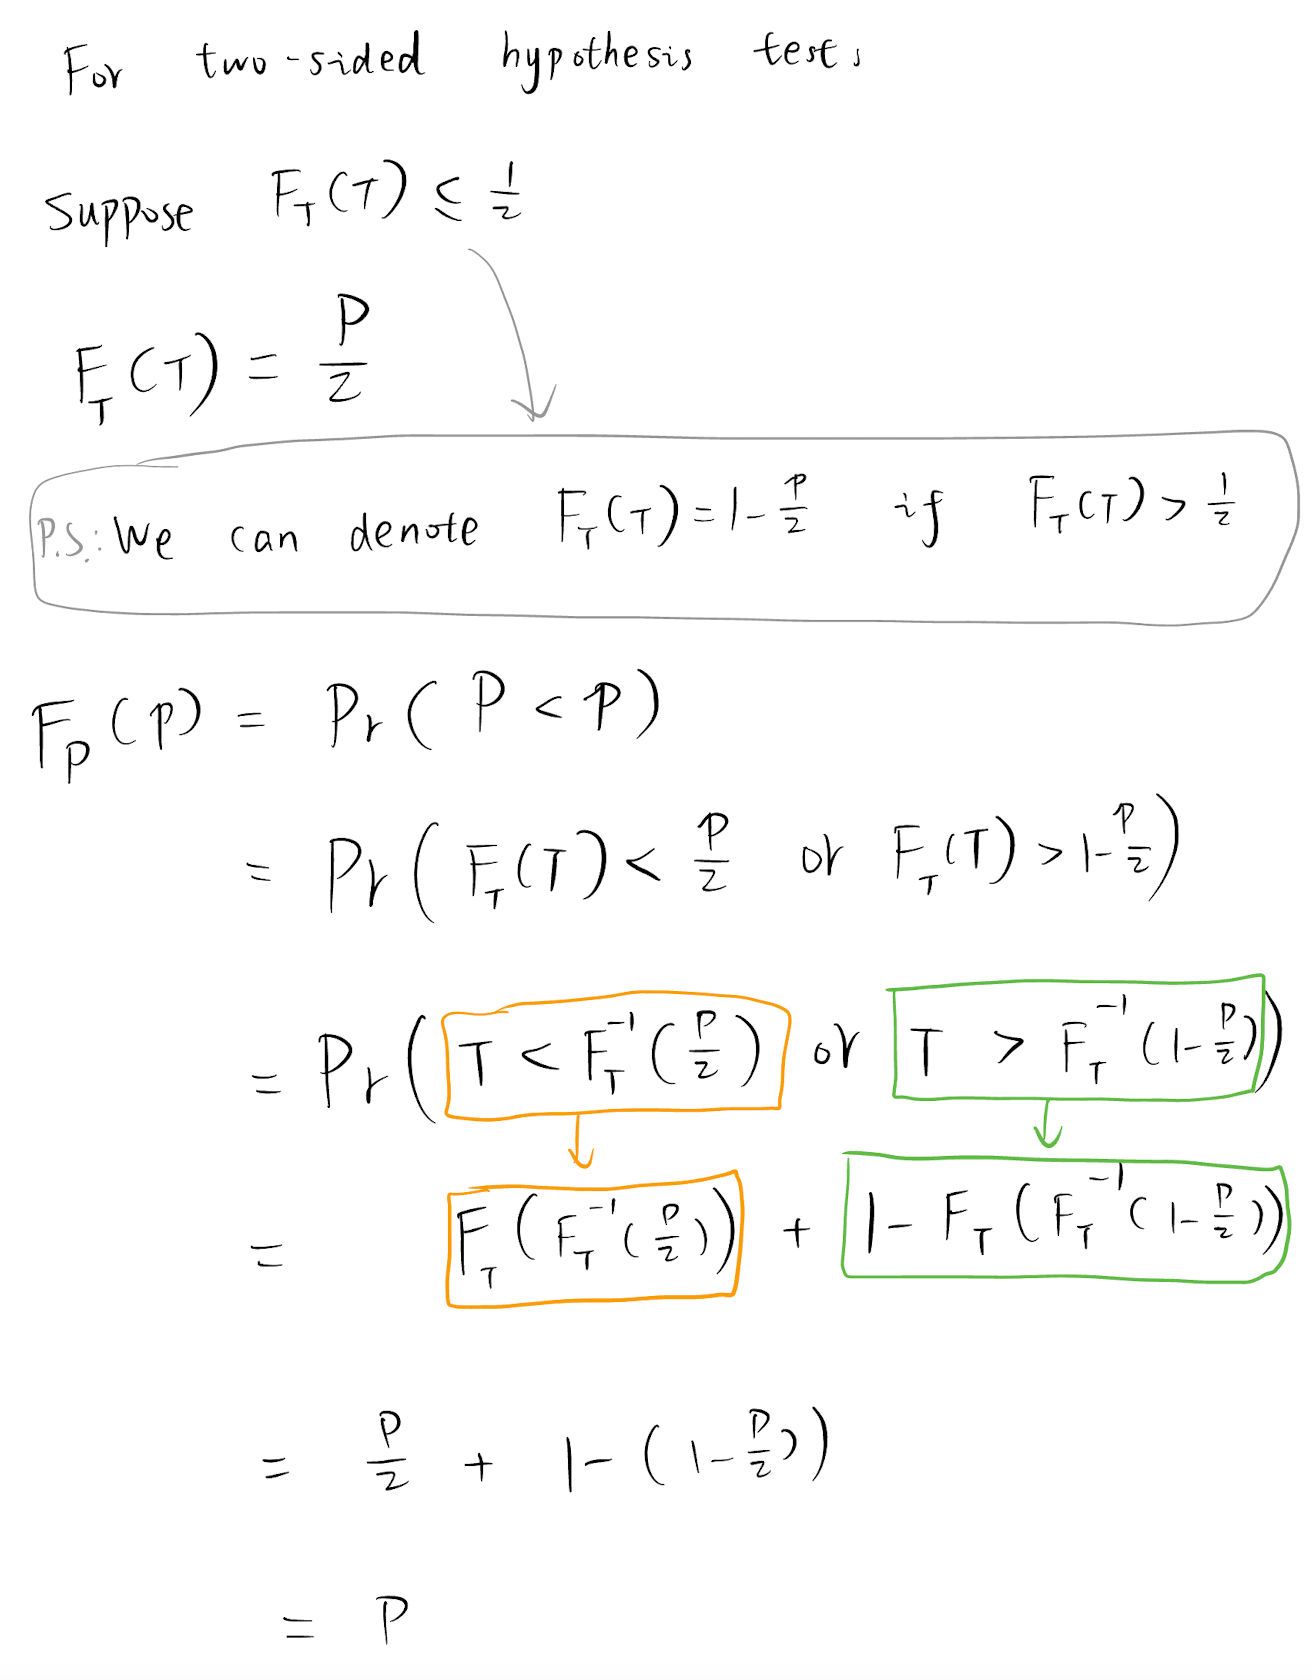 For two-sided hypothesis test,
Suppose F_T(T) ≤ 1/2
F_T(T) = P/2
P.S.: We can denote F_T(T) = 1 - P/2 if F_T(T) > 1/2
F_P(p) = Pr(P < p)
= Pr(F_T(T) < p/2 or F_T(T) > 1 - p/2)
= Pr(T < F_T^{-1}(p/2) or T > F_T^{-1}(1 - p/2))
= F_T(F_T^{-1}(p/2)) + 1 - F_T(F_T^{-1}(1 - p/2))
= p/2 + 1 - (1 - p/2))
= p